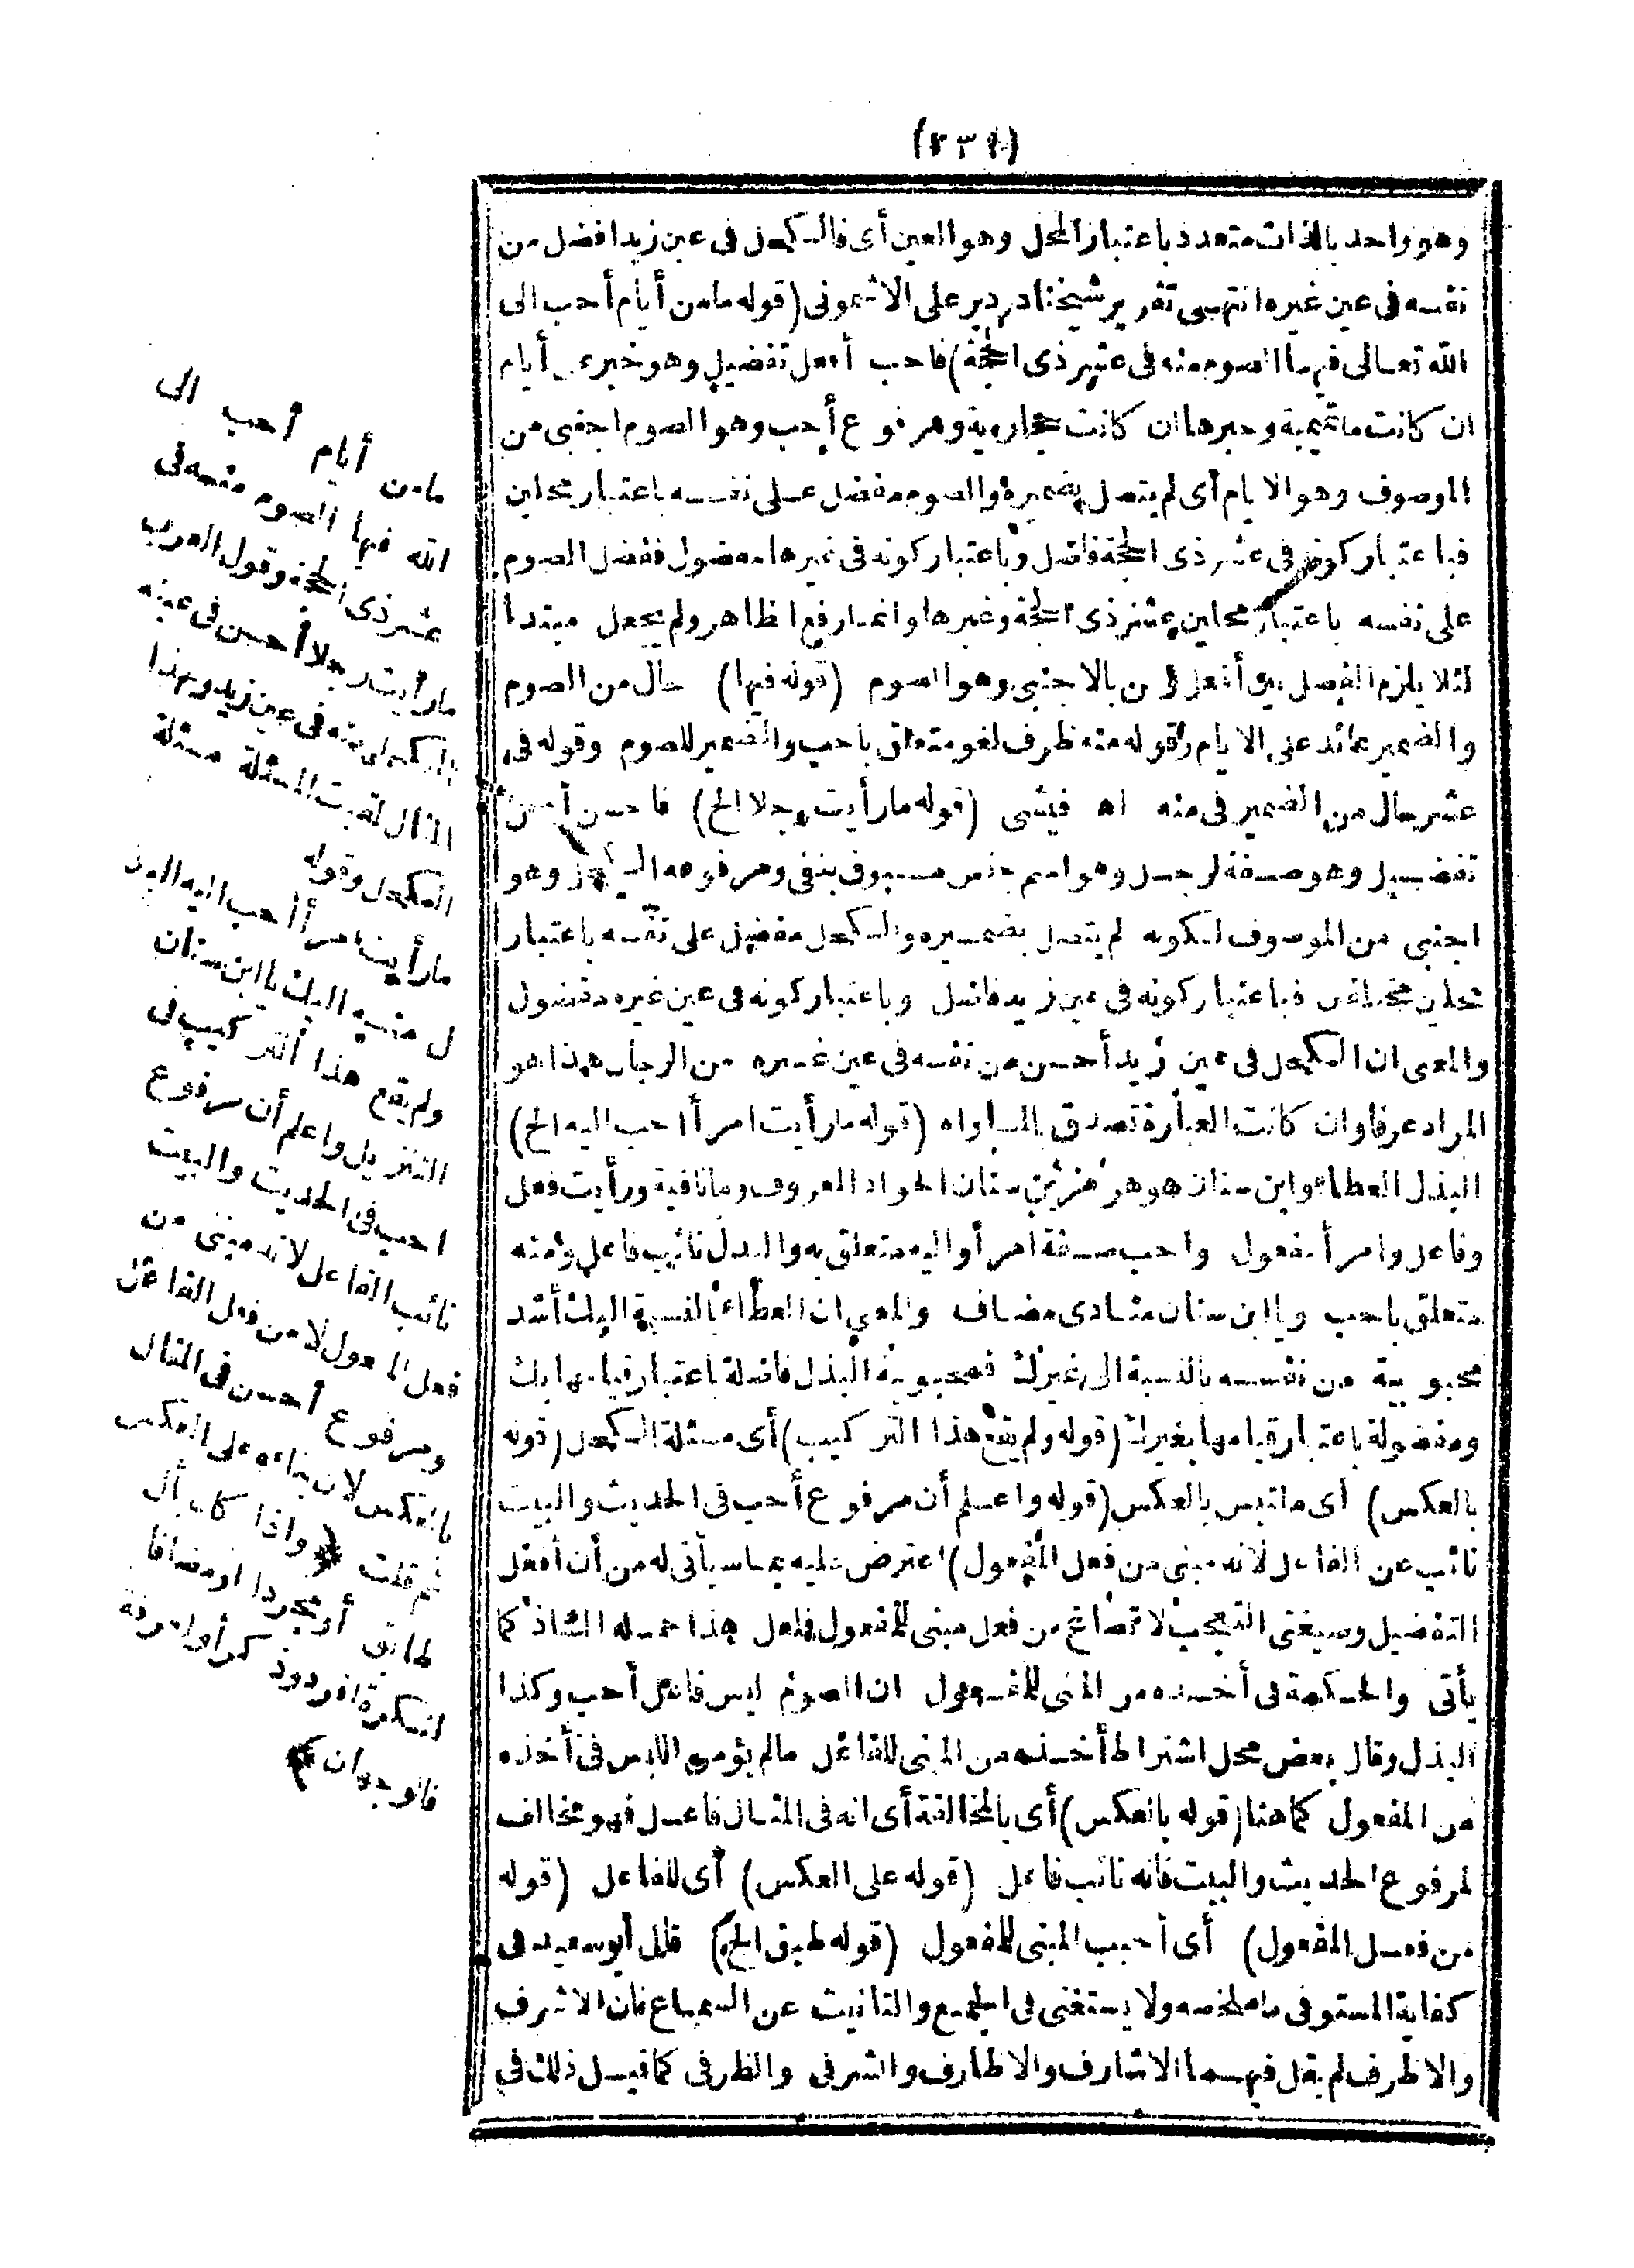 وهو واحد بالذات متعدد باعتبار المحل وهو العين أى فالكحل فى عين زيد افضل من
نفسه فى عين غيره انتهى تقرير شيخنا دردير على الاشمونى (قوله ما من أيام أحب الى
الله تعالى فيها الصوم منه فى عشر ذى الحجة) فاحب أفعل تفضيل وهو خبر عن أيام
ان كانت ما تميمية وخبرها ان كانت حجازية ومرفوع أحب وهو الصوم اجنبى من
الموصوف وهو الايام أى لم يتصل بضميره والصوم مفضل على نفسه باعتبار محلين
فباعتبار كونه فى عشر ذى الحجة فاضل وباعتبار كونه فى غيرها مفضول ففضل الصوم
على نفسه باعتبار محلين عشر ذى الحجة وغيرها وانما رفع الظاهر ولم يجعل مبتدأ
لئلا يلزم الفصل بين أفعل ومن بالاجنبى وهو الصوم (قوله فيها) حال من الصوم
والضمير عائد على الايام وقوله منه ظرف لغو متعلق باحب والضمير للصوم وقوله فى
عشر حال من الضمير فى منه اه فيشى (قوله ما رأيت رجلا الخ) فاحسن أفعل
تفضيل وهو صفة لرجل وهو اسم جنس مسبوق بنفى ومرفوعه الكحل وهو
اجنبى من الموصوف لكونه لم يتصل بضميره والكحل مفضل على نفسه باعتبار
محلين مختلفين فباعتبار كونه فى عين زيد فاضل وباعتبار كونه فى عين غيره مفضول
والمعنى ان الكحل فى عين زيد أحسن من نفسه فى عين غيره من الرجال هذا هو
المراد عرفا وان كانت العبارة تصدق بالمساواه (قوله ما رأيت امرأ احب اليه الخ)
البذل العطاء وابن سنان هو هرم بن سنان الجواد المعروف وما نافية ورأيت فعل
وفاعل وامرأ مفعول واحب صفة امرأ واليه متعلق به والبذل نائب فاعل ومنه
متعلق باحب ويا ابن سنان منادى مضاف والمعنى ان العطاء بالنسبة اليك أشد
محبوبية من نفسه بالنسبة الى غيرك فمحبوبية البذل فاضلة باعتبار قيامها بك
ومفضولة باعتبار قيامها بغيرك (قوله ولم يقع هذا التركيب) أى مسئلة الكحل (قوله
بالعكس) أى ملتبس بالعكس (قوله واعلم أن مرفوع أحب فى الحديث والبيت
نائب عن الفاعل لانه مبنى من فعل المفعول) اعترض عليه بما سيأتى له من أن أفعل
التفضيل وصيغتى التعجب لا تصاغ من فعل مبنى للمفعول فلعل هذا حمله الشاذ كما
يأتى والحكمة فى أخذه من المبنى للمفعول ان الصوم ليس فاعل أحب وكذا
البذل وقال بعض محل اشتراط أخذه من المبنى للفاعل ما لم يؤمن اللبس فى أخذه
من المفعول كما هنا (قوله بالعكس) أى بالمخالفة أى انه فى المثال فاعل فهو مخالف
لمرفوع الحديث والبيت فانه نائب فاعل (قوله على العكس) أى للفاعل (قوله
من فعل المفعول) أى أحبب المبنى للمفعول (قوله طبق الخ) قال أبو سعيد فى
كفاية المستوفى ما ملخصه ولا يستغنى فى الجمع والتانيث عن السماع فان الاشرف
والاظرف لم يقل فيهما الاشارف والاظارف والشرفى والظرفى كما قيل ذلك فى
ما من أيام أحب الى
الله فيها الصوم منه فى
عشر ذى الحجة وقول العرب
ما رأيت رجلا أحسن فى عينه
الكحل منه فى عين زيد وبهذا
المثال لقبت المسئلة مسئلة
الكحل وقوله
ما رأيت امرأ أحب اليه البذ
ل منه اليك يا ابن سنان
ولم يقع هذا التركيب فى
التنزيل واعلم أن مرفوع
احب فى الحديث والبيت
نائب الفاعل لانه مبنى من
فعل المفعول لا من فعل الفاعل
ومرفوع أحسن فى المثال
بالعكس لان بناءه على العكس
ثم قلت ﴿ واذا كان بأل
طابق أو مجردا او مضافا
لنكرة افرد وذكر أو لمعرفة
فالوجهان ﴾